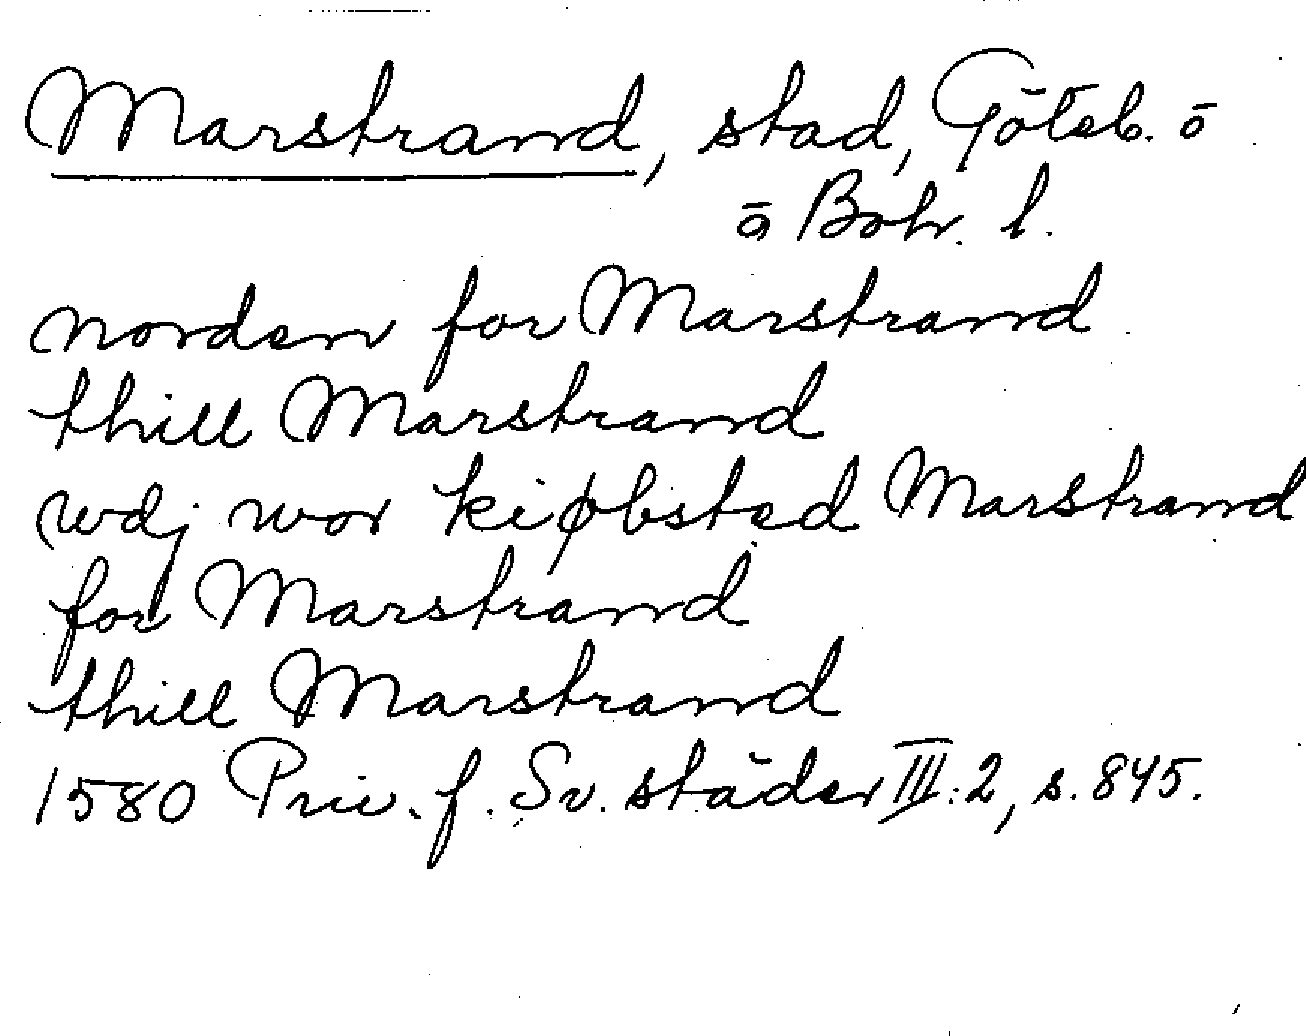 Marstrand, stad, Göteb. o
o Boh. l.
norden for Marstrand
thill Marstrand
wdj wor kiøbsted Marstrand
for Marstrand
thill Marstrand
1580 Priv. f. Sv. städer III:2, s. 845.